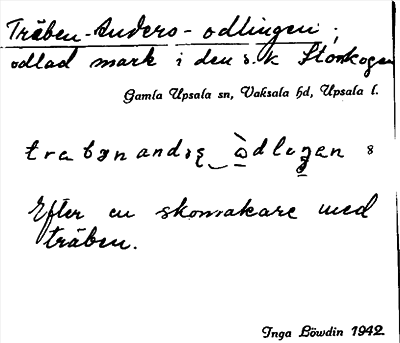 Träben-Anders-odlingen;
odlad mark i den s.k Storskogen
Gamla Upsala sn, Vaksala hd, Upsala l.
8
Efter en skomakare med
träben.
Inga Löwdin 1942